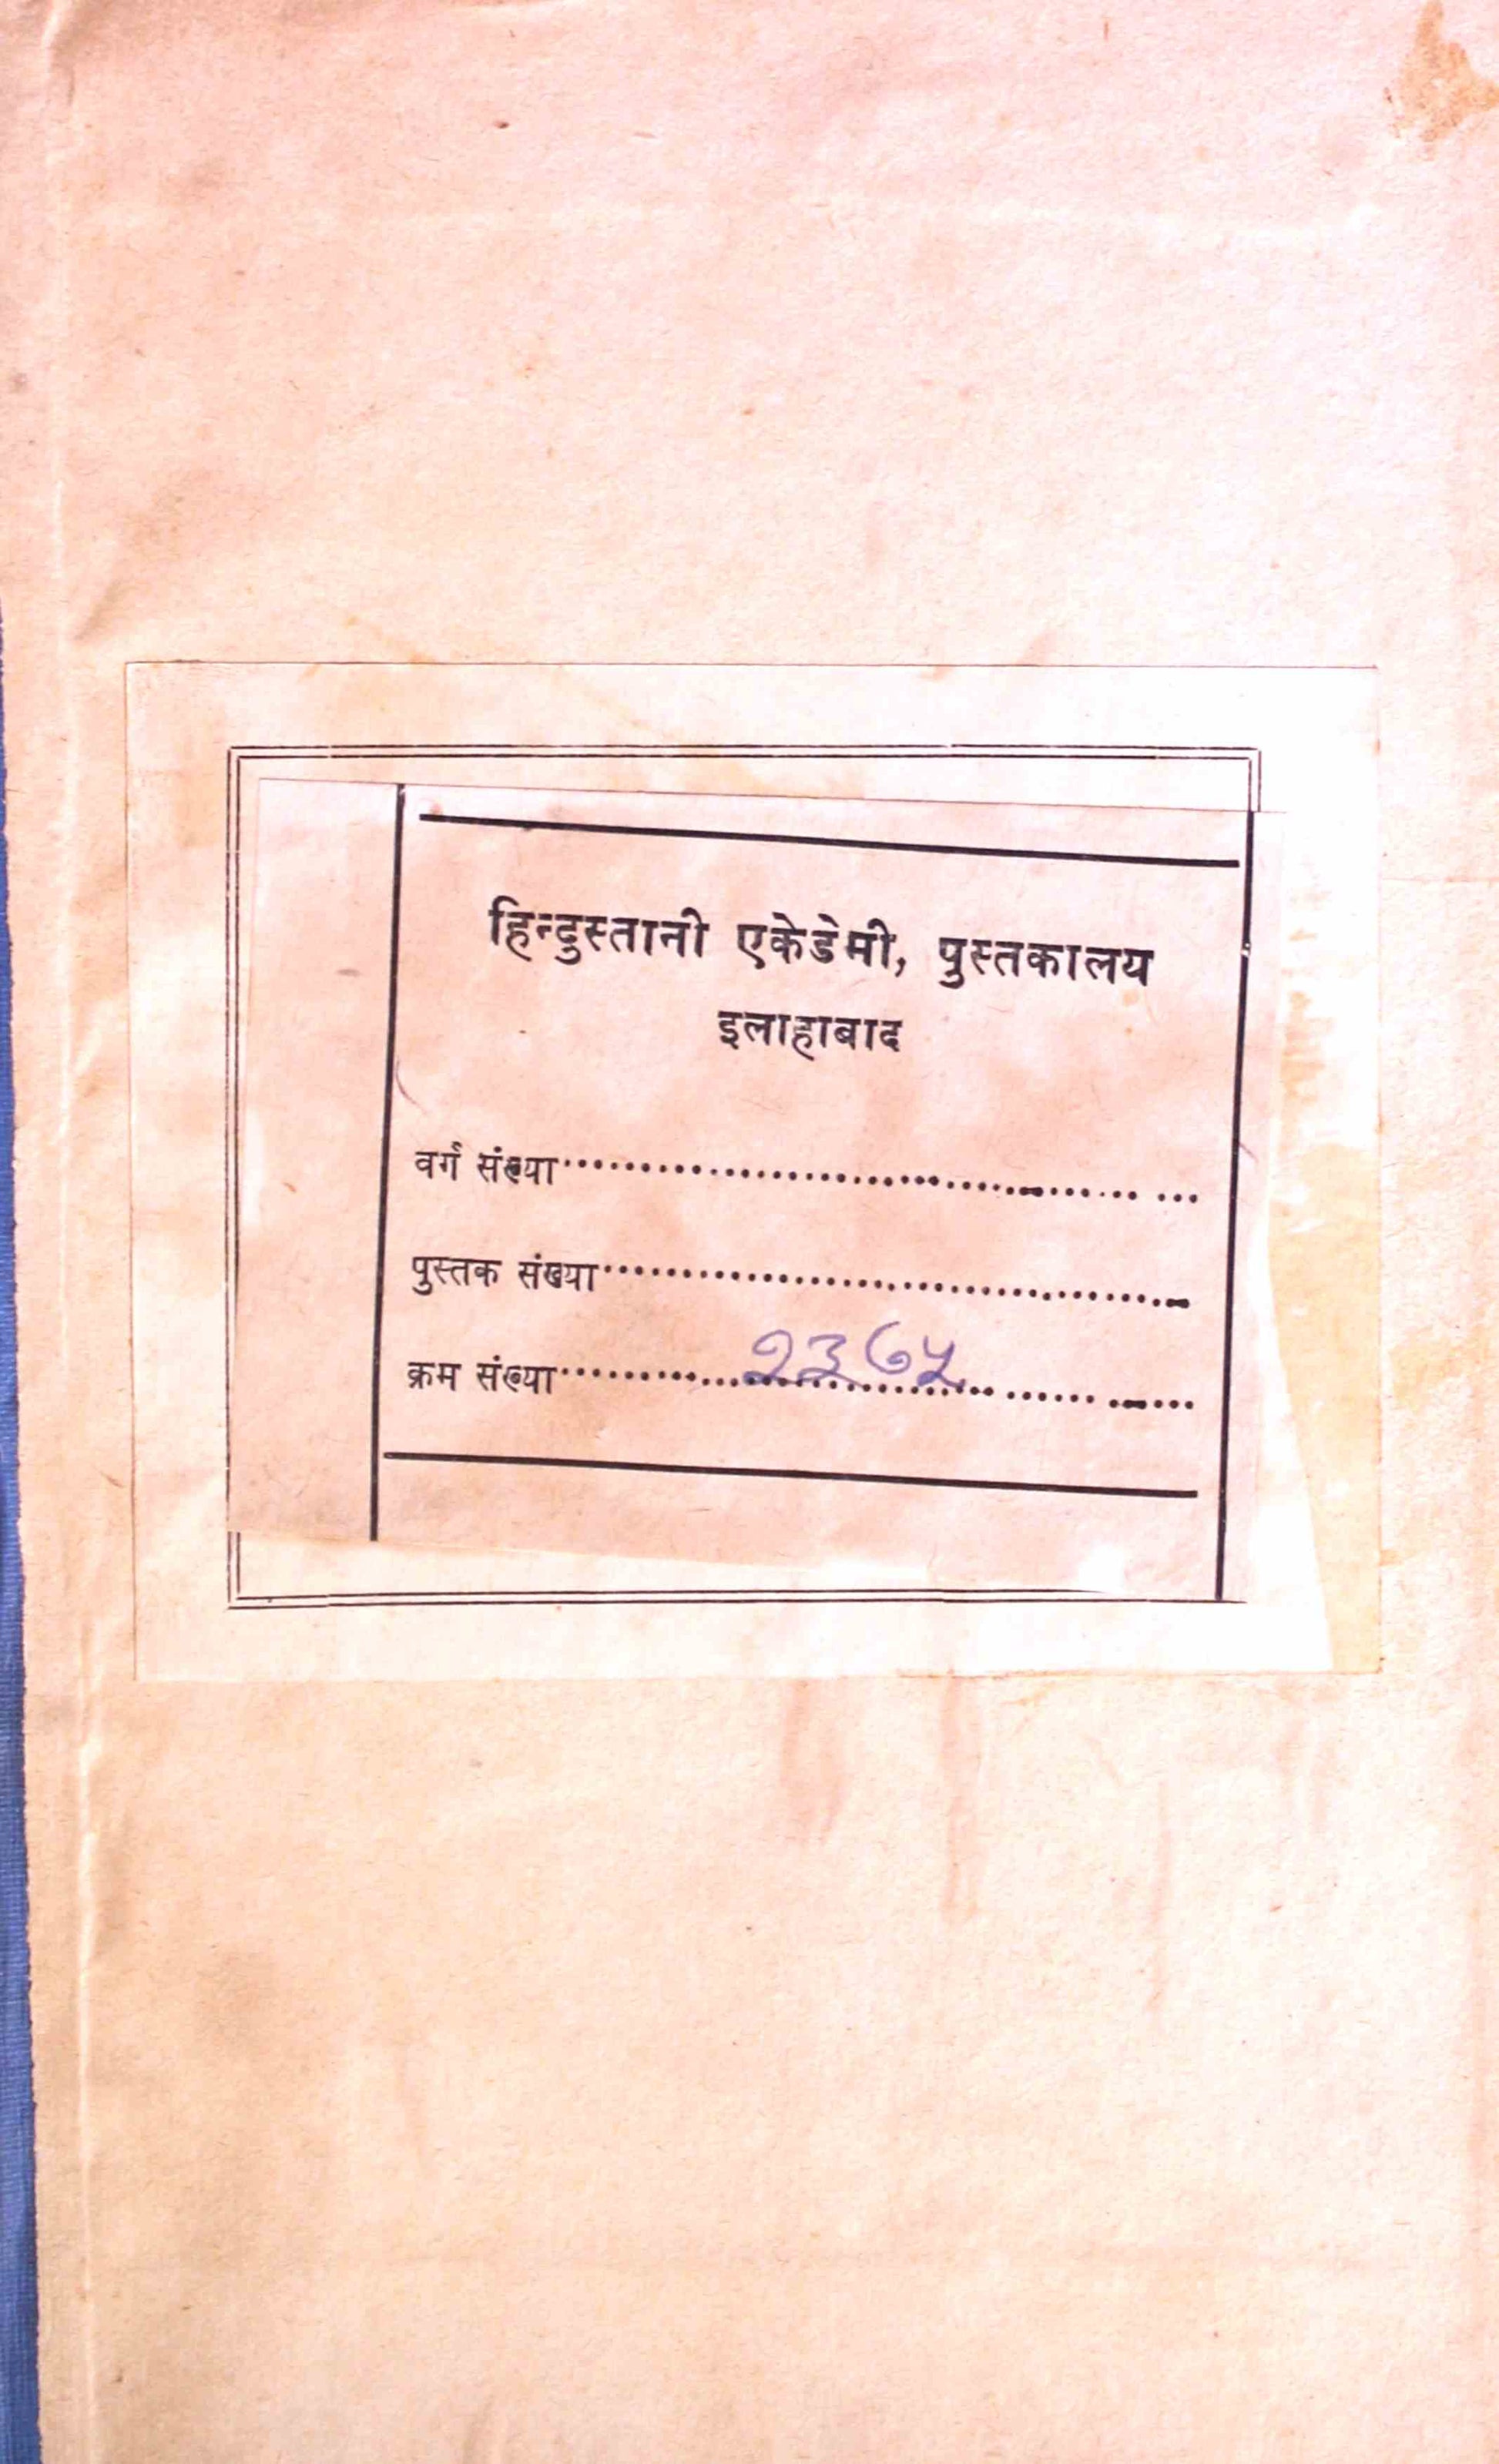 हिन्दुस्तानी एकेडेमी, पुस्तकालय
इलाहाबाद
वर्ग संख्या
पुस्तक संख्या
क्रम संख्या २३७५